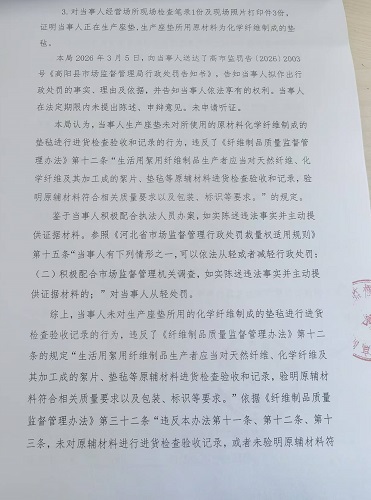 3. 对当事人经营场所现场检查笔录1份及现场照片打印件3份,
证明当事人正在生产座垫,生产座垫所用原材料为化学纤维制成的垫
毡。
本局 2026 年 3 月 5 日, 向当事人送达了高市监罚告〔2026〕2003
号《高阳县市场监督管理局行政处罚告知书》, 告知当事人拟作出行
政处罚的事实、理由及依据, 并告知当事人依法享有的权利。当事人
在法定期限内未提出陈述、申辩意见、未申请听证。
本局认为, 当事人生产座垫未对所使用的原材料化学纤维制成的
垫毡进行进货检查验收和记录的行为, 违反了《纤维制品质量监督管
理办法》第十二条“生活用絮用纤维制品生产者应当对天然纤维、化
学纤维及其加工成的絮片、垫毡等原辅材料进货检查验收和记录, 验
明原辅材料符合相关质量要求以及包装、标识等要求。”的规定。
鉴于当事人积极配合执法人员办案, 如实陈述违法事实并主动提
供证据材料。参照《河北省市场监督管理行政处罚裁量权适用规则》
第十五条“当事人有下列情形之一, 可以依法从轻或者减轻行政处罚:
(二) 积极配合市场监督管理机关调查, 如实陈述违法事实并主动提
供证据材料的; ”对当事人从轻处罚。
综上, 当事人未对生产座垫所用的化学纤维制成的垫毡进行进货
检查验收和记录的行为, 违反了《纤维制品质量监督管理办法》第十二
条的规定“生活用絮用纤维制品生产者应当对天然纤维、化学纤维及
其加工成的絮片、垫毡等原辅材料进货检查验收和记录, 验明原辅材
料符合相关质量要求以及包装、标识等要求。”依据《纤维制品质量
监督管理办法》第三十二条“违反本办法第十一条、第十二条、第十
三条, 未对原辅材料进行进货检查验收记录, 或者未验明原辅材料符